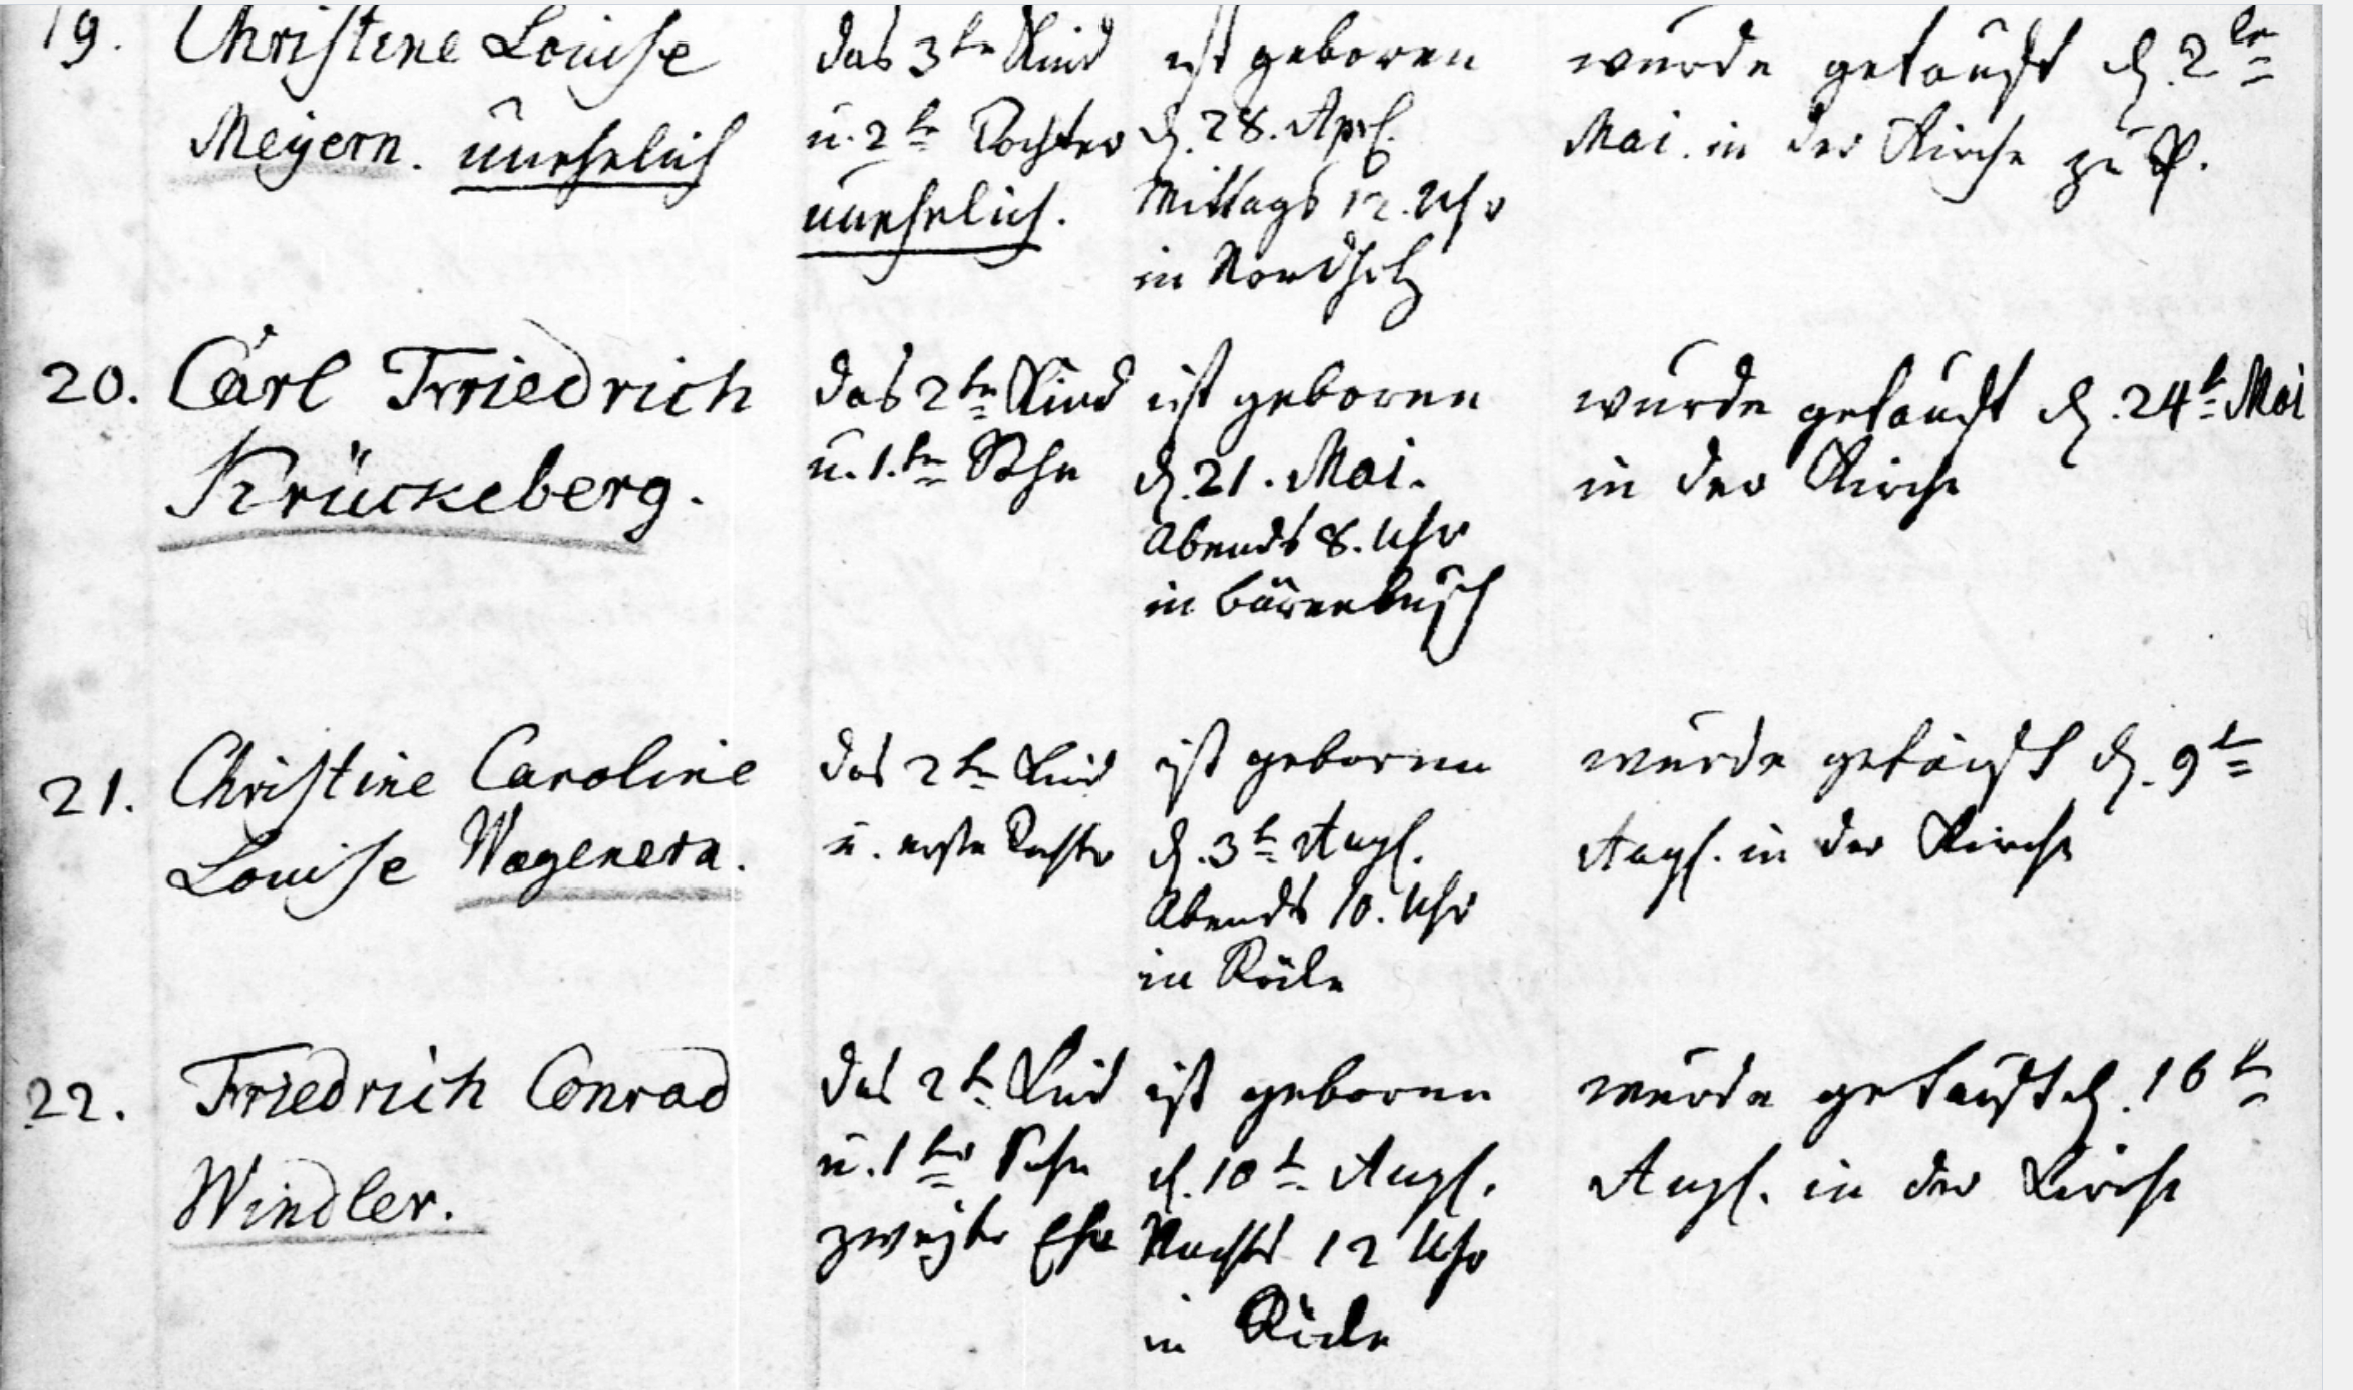 19. Christine Louise
Meyern. unehelich
das 3te Kind
u. 2te Tochter
unehelich.
ist geboren
d. 28. Apr.
Mittags 12. Uhr
in Nordholz
wurde getauft d. 2te
Mai. in der Kirche zu P.
20. Carl Friedrich
Krückeberg.
das 2te Kind
u. 1.te Sohn
ist geboren
d. 21. Mai.
Abends 8. Uhr
in Bärenbusch
wurde getauft d. 24t Mai
in der Kirche
21. Christine Caroline
Louise Wagenern.
das 2te Kind
u. erste Tochter
ist geboren
d. 3t Aug.
Abends 10. Uhr
in
wurde getauft d. 9t
Aug. in der Kirche
22. Friedrich Conrad
Windler.
das 2te Kind
u. 1ter Sohn
zweyter Ehe
ist geboren
d. 10t Aug.
Nachts 12 Uhr
in
wurde getauft d. 16t
Aug. in der Kirche